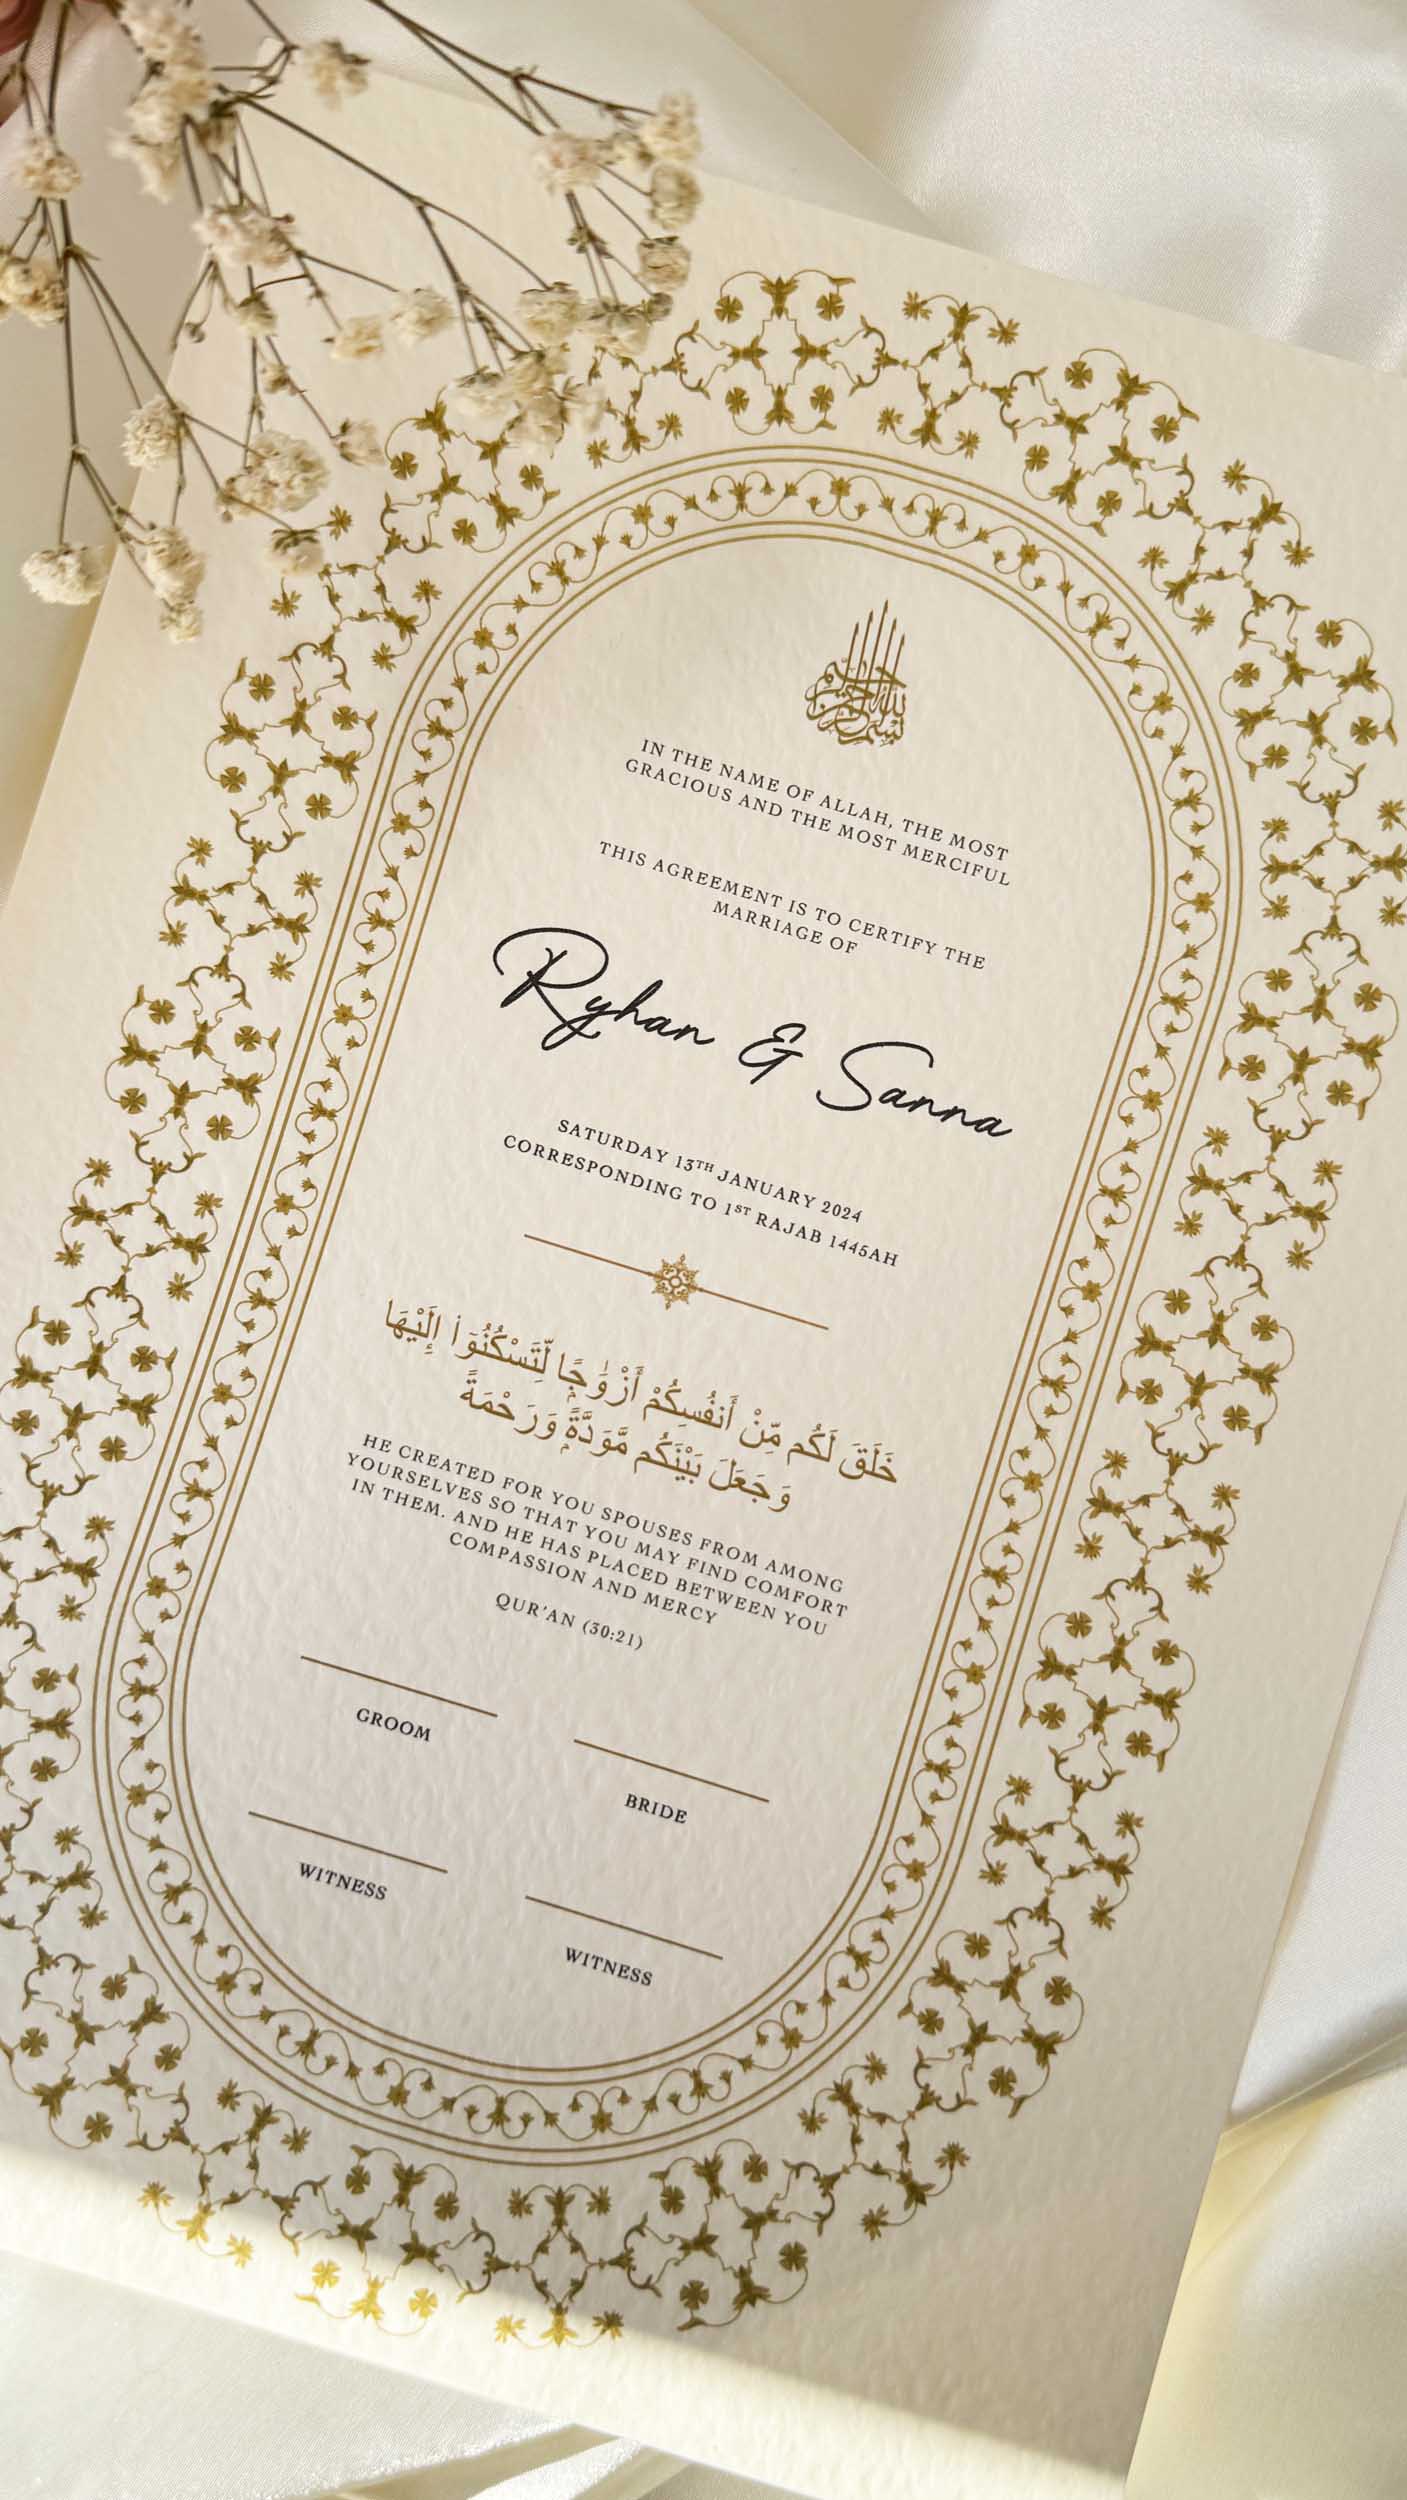 بسم الله الرحمن الرحيم
IN THE NAME OF ALLAH, THE MOST
GRACIOUS AND THE MOST MERCIFUL
THIS AGREEMENT IS TO CERTIFY THE
MARRIAGE OF
Ryhan & Sanna
SATURDAY 13TH JANUARY 2024
CORRESPONDING TO 1ST RAJAB 1445AH
خَلَقَ لَكُم مِّنْ أَنفُسِكُمْ أَزْوَٰجًۭا لِّتَسْكُنُوٓا۟ إِلَيْهَا
وَجَعَلَ بَيْنَكُم مَّوَدَّةًۭ وَرَحْمَةً
HE CREATED FOR YOU SPOUSES FROM AMONG
YOURSELVES SO THAT YOU MAY FIND COMFORT
IN THEM. AND HE HAS PLACED BETWEEN YOU
COMPASSION AND MERCY
QUR'AN (30:21)
GROOM
BRIDE
WITNESS
WITNESS